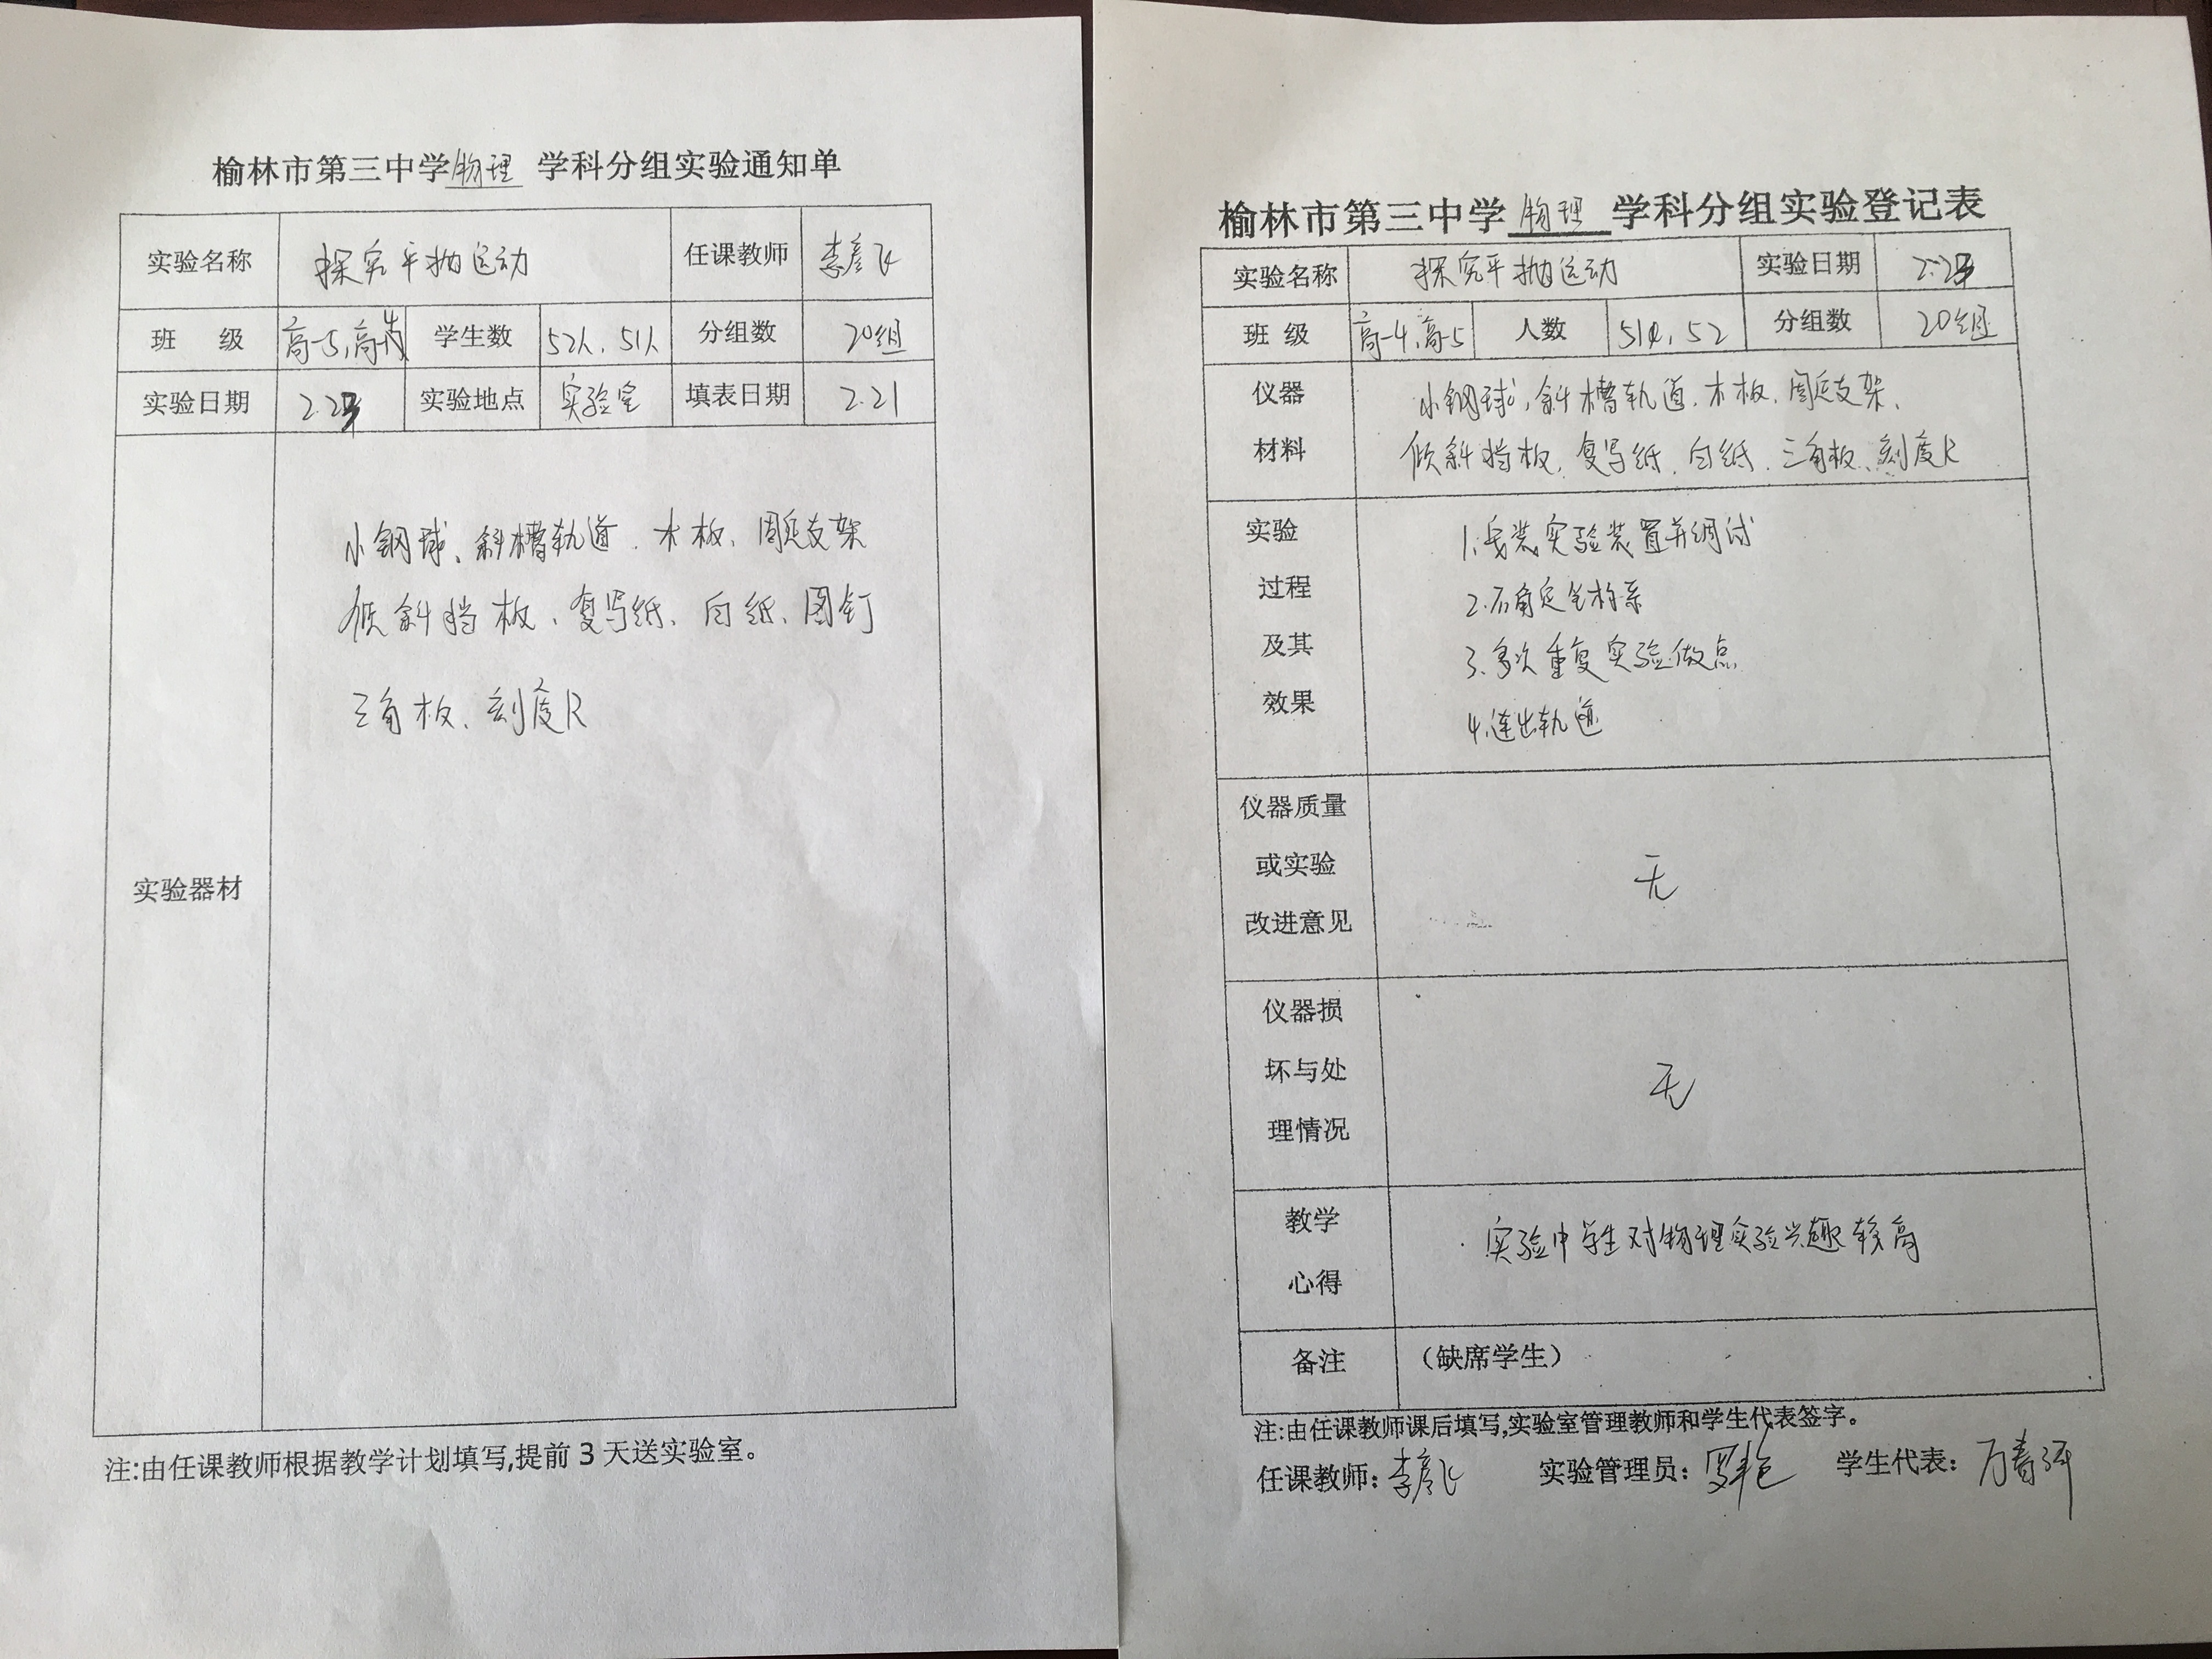 榆林市第三中学物理 学科分组实验通知单
实验名称 探究平抛运动 任课教师 李彦飞
班 级 高一5,高一4 学生数 52人、51人 分组数 20组
实验日期 实验地点 实验室 填表日期 2.21
小钢球、斜槽轨道、木板、固定支架
倾斜挡板、复写纸、白纸、图钉
三角板、刻度尺
实验器材
注:由任课教师根据教学计划填写,提前 3 天送实验室。
榆林市第三中学 物理 学科分组实验登记表
实验名称 探究平抛运动 实验日期
班 级 高一4,高一5 人数 51,52 分组数 20组
仪器 小钢球,斜槽轨道、木板、固定支架、
材料 倾斜挡板、复写纸、白纸、三角板、刻度尺
实验 1.安装实验装置并调试
过程 2.确定坐标系
及其 3.多次重复实验做点
效果 4.连出轨迹
仪器质量
或实验 无
改进意见
仪器损
坏与处 无
理情况
教学 实验中学生对物理实验兴趣较高
心得
备注 (缺席学生)
注:由任课教师课后填写,实验室管理教师和学生代表签字。
任课教师:李彦飞 实验管理员: 学生代表: